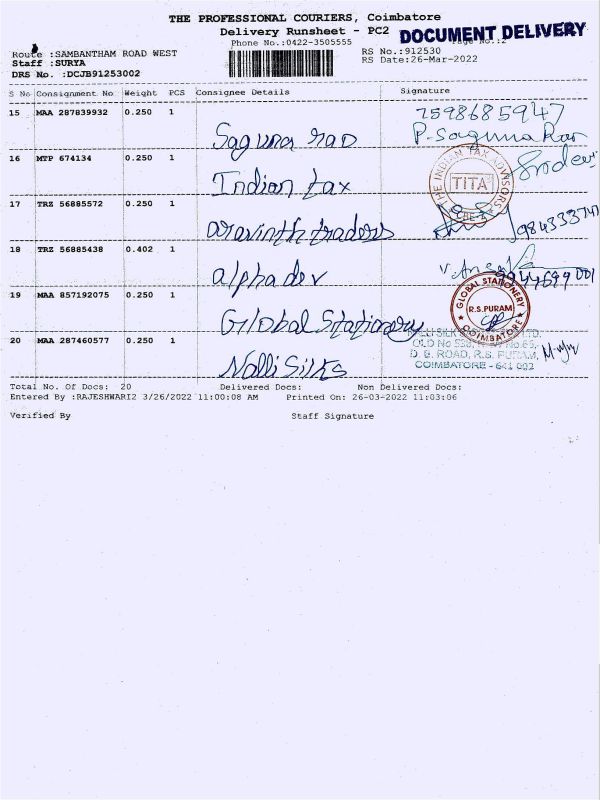 THE PROFESSIONAL COURIERS, Coimbatore
Delivery Runsheet - PC2
DOCUMENT DELIVERY
Phone No.:0422-3505555
Page No.:2
Route :SAMBANTHAM ROAD WEST
RS No.:912530
Staff :SURYA
RS Date:26-Mar-2022
DRS No. :DCJB91253002
S No Consignment No Weight PCS Consignee Details Signature
15 MAA 287839932 0.250 1 Saguna rao 7598685947
P. Saguna Rao
16 MTP 674134 0.250 1 Indian tax
THE INDIAN TAX ADVISORS
TITA
CBE-2
17 TRZ 56885572 0.250 1 aravinth traders
18 TRZ 56885438 0.402 1 alpha dev 9944699001
19 MAA 857192075 0.250 1 Global Stationery
GLOBAL STATIONERY
R.S.PURAM
COIMBATORE
20 MAA 287460577 0.250 1 Nalli Silks
D. B. ROAD, R.S. PURAM,
COIMBATORE - 641 002
Total No. Of Docs: 20 Delivered Docs: Non Delivered Docs:
Entered By :RAJESHWARI2 3/26/2022 11:00:08 AM Printed On: 26-03-2022 11:03:06
Verified By Staff Signature